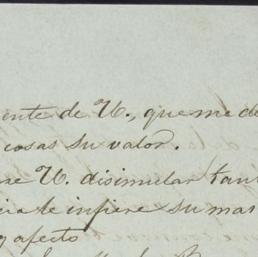 ente de U., que me de
cosas su valor.
se U. disimular tan
cia le infiere su mas
y afecto